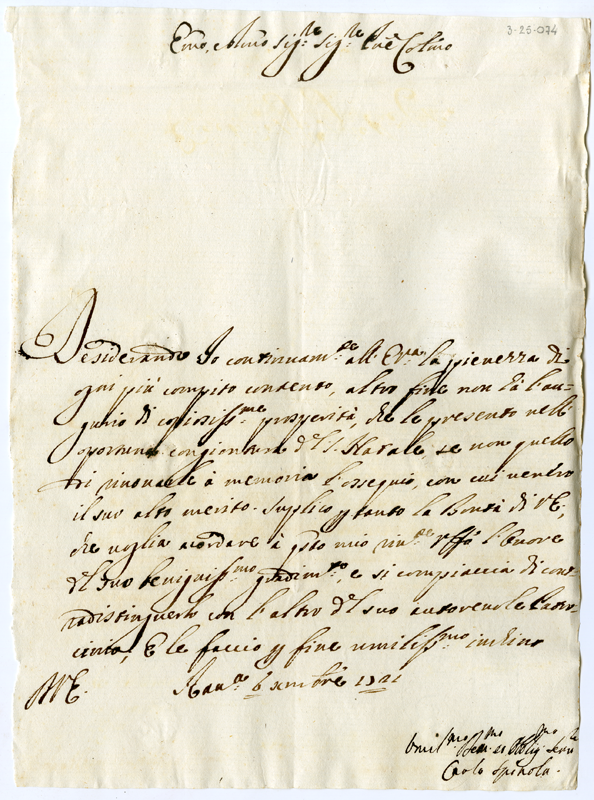 3-25-074
Emo, e Rmo Sig.re Sig.re Pne Colmo
Desiderando Io continuam.te all' E.va la pienezza di
ogni più compito contento, altro fine non hà l'au-
gurio di copiosiss.me prosperità, che le presento nell'
opportuna congiontura del S. Natale, se non quello
di rinovarle à memoria l'ossequio, con cui venero
il suo alto merito. Suplico p tanto la Bontà di V.E.,
che voglia accordare à qsto mio riv.te uff.o l'honore
del suo benigniss.mo gradim.to, e si compiaccia di cont-
radistinguerlo con l'altro del suo autorevole Patro-
cinio, E le faccio p fine umiliss.mo inchino
D.V.E.
6 xmbre 1721
Umil.mo Dev.mo et Oblig.mo Serv.re
Carlo Spinola.